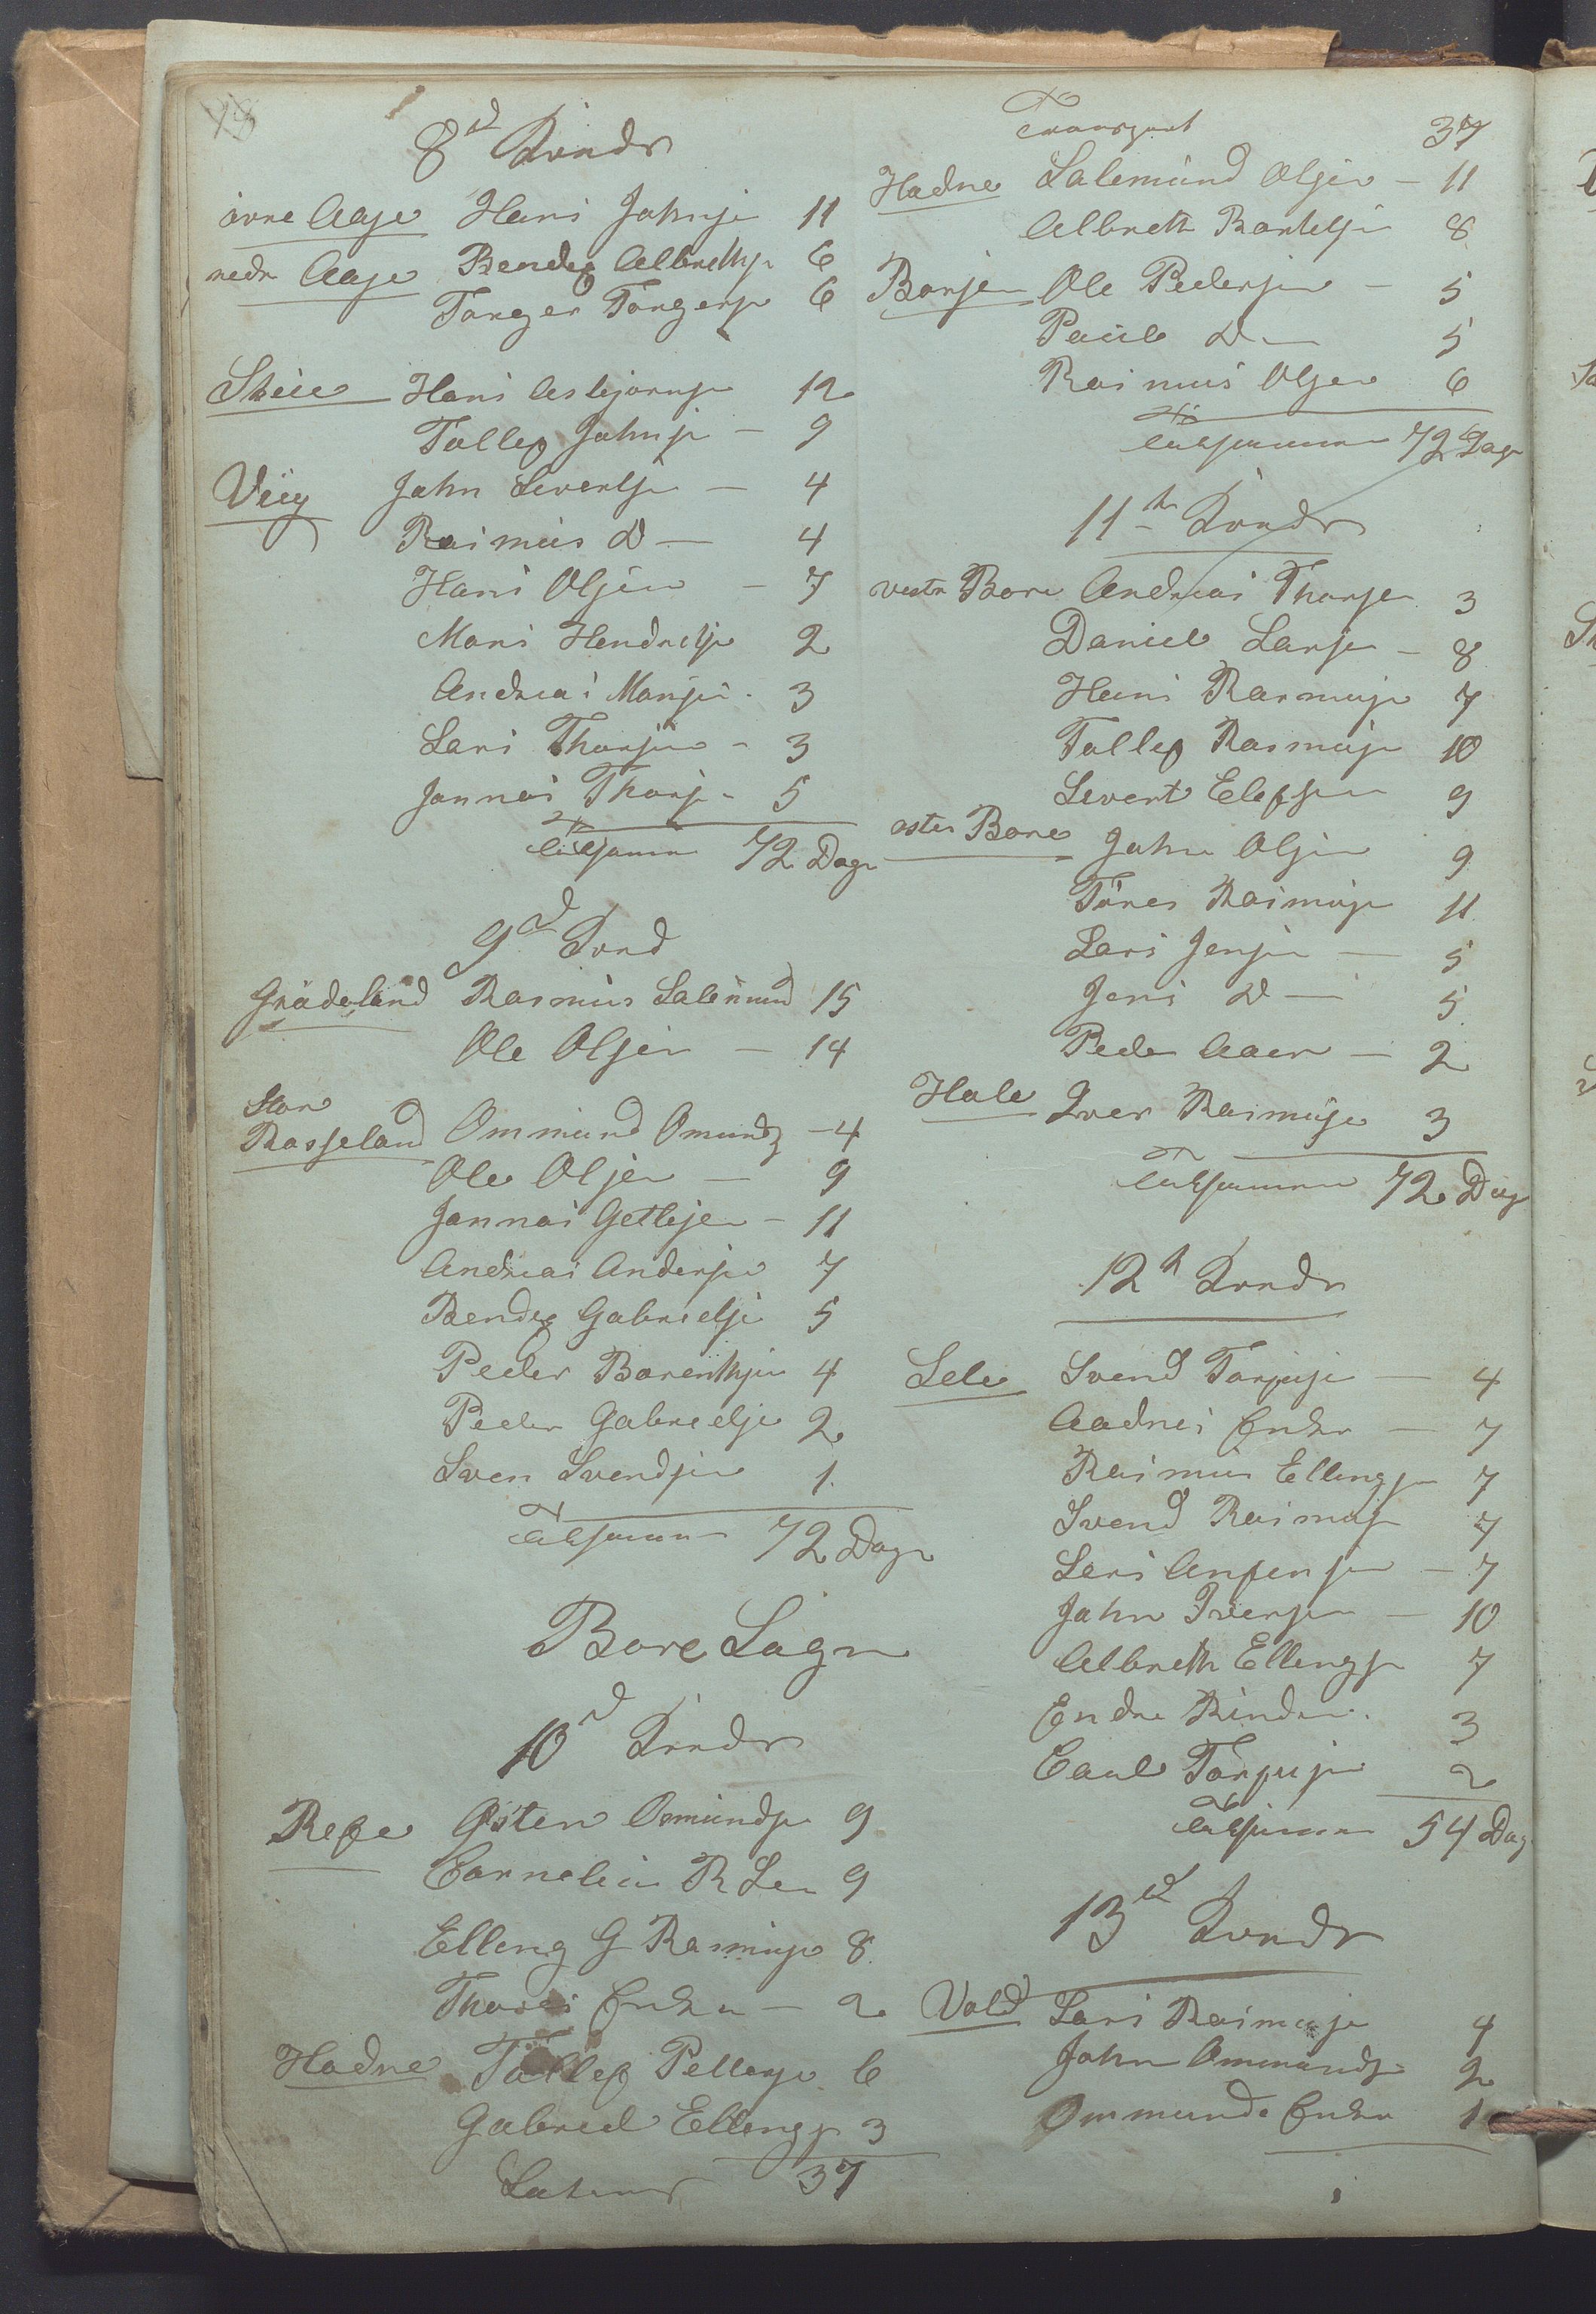 18
8de Runde
övre Aase Hans Jahnse 11
nedr Aase Bendeg Albrethse 6
Torger Torgerse 6
Skeie Hans Asbjörnse 12
Tollef Jahnse — 9
Viig Jahn Sivertse — 4
Rasmus D — 4
Hans Olsen — 7
Mons Hendrikse 2
Andreas Monsen 3
Lars Thorsen - 3
Jonnas Thors - 5
Tilsamen 72 Dage
9de Rund
Grödeland Rasmus Salemund 15
Ole Olsen — 14
Stor
Rosseland Ommund Omunds — 4
Ole Olsen — 9
Jonnas Getlesen — 11
Andreas Anderse 7
Bendeg Gabrielse 5
Peder Borenthsen 4
Peder Gabrielse 2
Sven Svendsen 1
Tilsamen 72 Dage
Bore Lagn
10de Runde
Refe Østen Osmundse 9
Cornelius R Le 9
Elleng G Rasmuse 8
Thores Enke — 2
Hodne Tollef Pederse 6
Gabriel Ellengse 3
Latus 37
Transport 37
Hodne Salemund Olsen — 11
Albreth Bartelse 8
Borsen Ole Pedersen — 5
Paul D — 5
Rasmus Olsen 6
Tilsammen 72 Dage
11te Runde
vestr Bore Andreas Thorse 3
Daniel Larse — 8
Hans Rasmuse 7
Tollef Rasmuse 10
Sivert Elefsen 9
øster Bore Jahn Olsen 9
Töres Rasmuse 11
Lars Jensen — 5
Jens D — 5
Peder Aaen — 2
Hole Iver Rasmuse 3
Tilsammen 72 Dage
12te Runde
Sele Svend Torjuse — 4
Aadnes Enke — 7
Rasmus Ellengse 7
Svend Rasmuse 7
Lars Anfensen — 7
Jahn Iversen — 10
Albreth Ellengse 7
Endre 3
Carl Torjuse 2
Tilsammen 54 Dag
13de Runde
Vold Lars Rasmuse 4
John Ommundse 2
Ommunds Enke 1